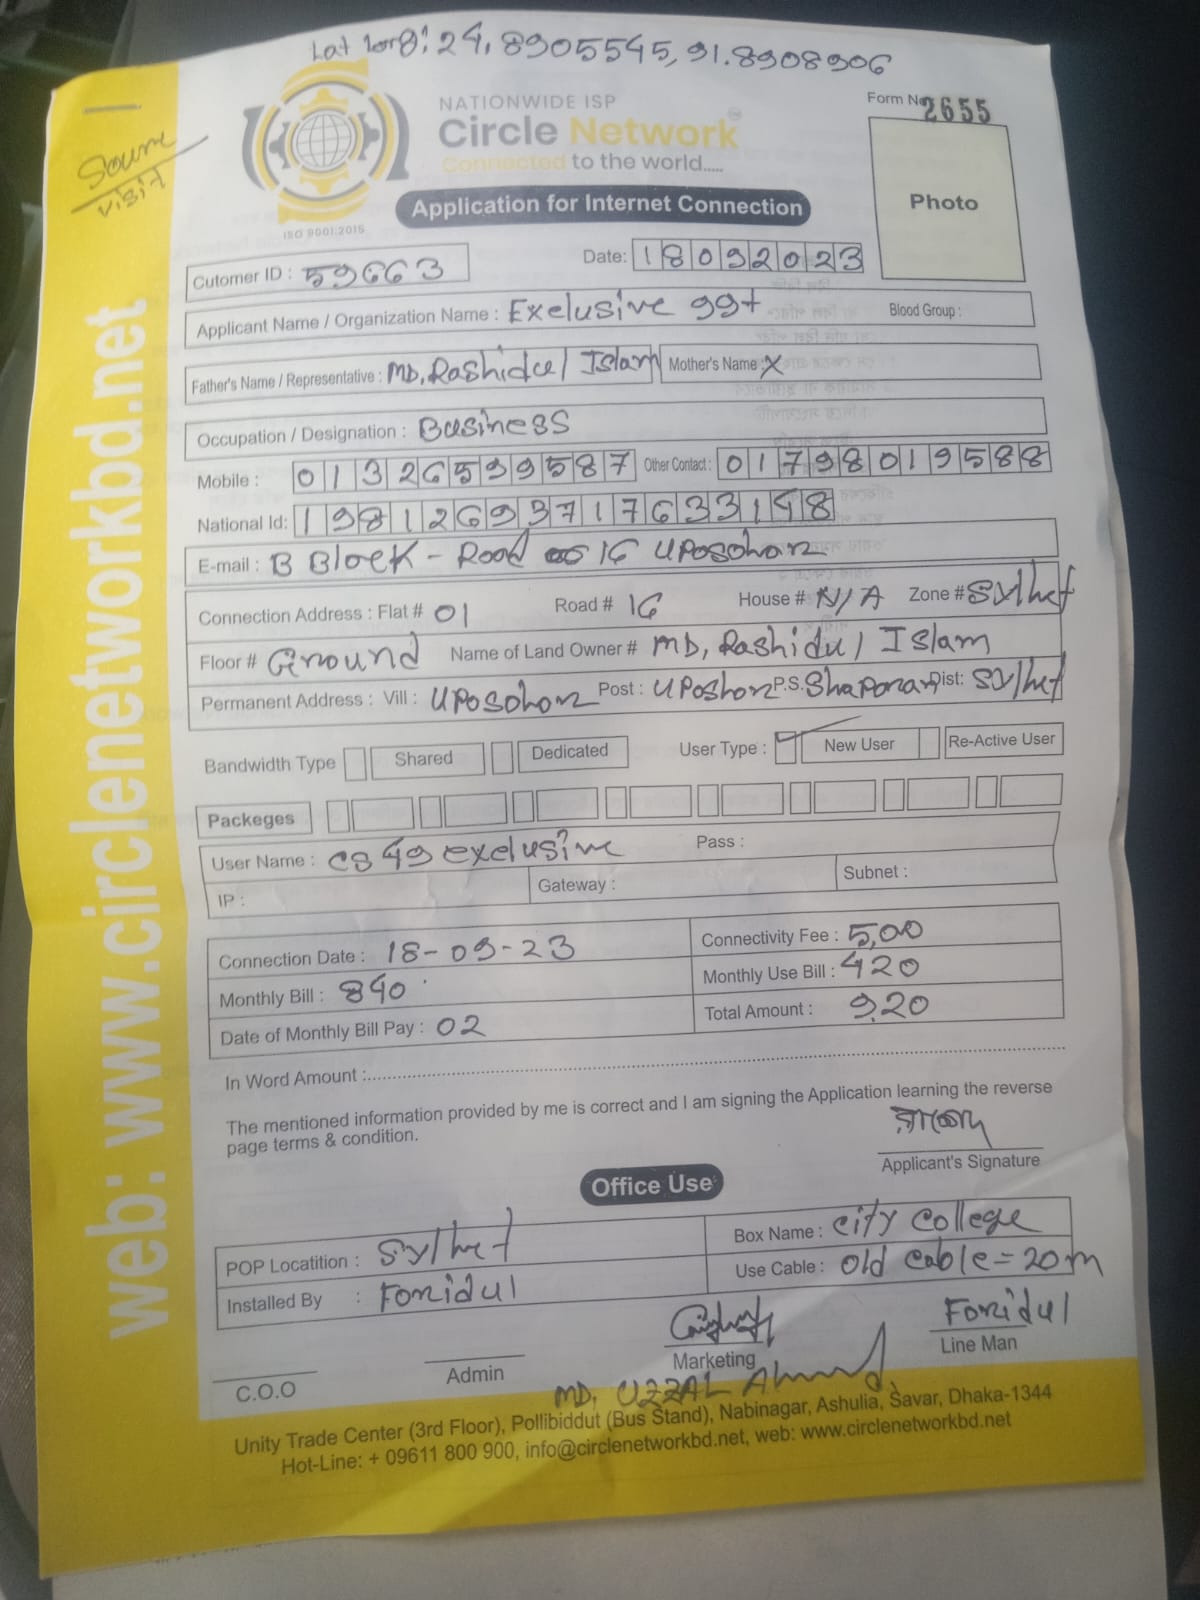 Lat long: 24.8905545, 91.8908906
NATIONWIDE ISP
Circle Network
Connected to the world.....
ISO 9001:2015
Form No 2655
Photo
Source
visit
Application for Internet Connection
Cutomer ID : 59663 Date: 18092023
Applicant Name / Organization Name : Exelusive 99+ Blood Group :
Father's Name / Representative : MD, Rashidul Islam Mother's Name : X
Occupation / Designation : Business
Mobile : 01326599587 Other Contact : 01798019588
National Id: 19812693717633148
E-mail : B Block - Road 16 Uposohor
Connection Address : Flat # 01 Road # 16 House # N/A Zone # Sylhet
Floor # Ground Name of Land Owner # MD, Rashidul Islam
Permanent Address : Vill : Uposohor Post : Uposhor P.S. Shaporan Dist: Sylhet
Bandwidth Type Shared Dedicated User Type : New User Re-Active User
Packeges
User Name : cs49exclusive Pass :
IP : Gateway : Subnet :
Connection Date : 18-09-23 Connectivity Fee : 5,00
Monthly Bill : 840 Monthly Use Bill : 420
Date of Monthly Bill Pay : 02 Total Amount : 920
In Word Amount :
The mentioned information provided by me is correct and I am signing the Application learning the reverse
page terms & condition.
Applicant's Signature
Office Use
POP Locatition : Sylhet Box Name : City College
Installed By : Foridul Use Cable : Old Cable = 20m
C.O.O Admin Marketing Foridul Line Man
MD. UZZAL Ahmed
Unity Trade Center (3rd Floor), Pollibiddut (Bus Stand), Nabinagar, Ashulia, Savar, Dhaka-1344
Hot-Line: + 09611 800 900, info@circlenetworkbd.net, web: www.circlenetworkbd.net
web: www.circlenetworkbd.net